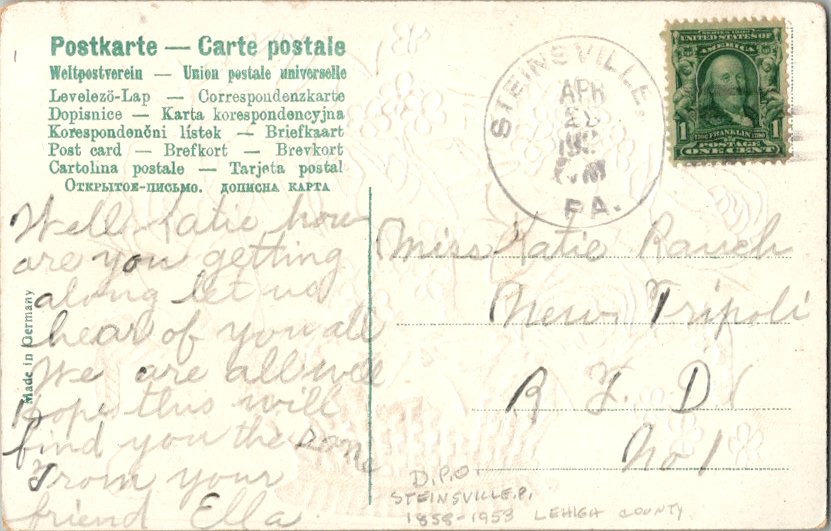 Postkarte — Carte postale
Weltpostverein — Union postale universelle
Levelező-Lap — Correspondenzkarte
Dopisnice — Karta korespondencyjna
Korespondenční lístek — Briefkaart
Post card — Brefkort — Brevkort
Cartolina postale — Tarjeta postal
Открытое-письмо. дописна карта
Made in Germany
Well Katie how
are you getting
along let us
hear of you all
We are all well
hope this will
find you the same
From your
friend Ella
STEINSVILLE,
APR
PA.
SERIES 1902
UNITED STATES OF AMERICA
1 FRANKLIN 1
POSTAGE
ONE CENT
Miss Katie Rauch
New Tripoli
R F. D.
No 1
D.P.O.
STEINSVILLE, P.
1858-1953 LEHIGH COUNTY